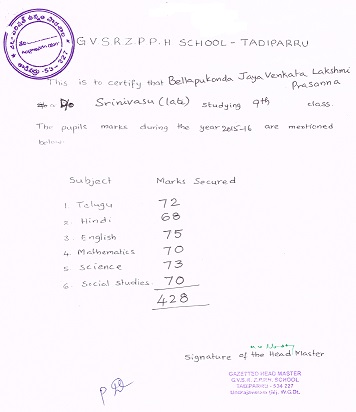 G.V.S.R.Z.P.P.H SCHOOL - TADIPARRU
This is to certify that Bellapukonda Jaya Venkata Lakshmi
Prasanna
D/o Srinivasu (late) studying 9th class.
The pupils marks during the year 2015-16 are mentioned
below.
Subject Marks Secured
1. Telugu 72
2. Hindi 68
3. English 75
4. Mathematics 70
5. Science 73
6. Social Studies 70
428
Signature of the Head Master
GAZETTED HEAD MASTER
G.V.S.R. Z.P.P.H. SCHOOL
TADIPARRU - 534 227
Undrajavaram (M), W.G.Dt.